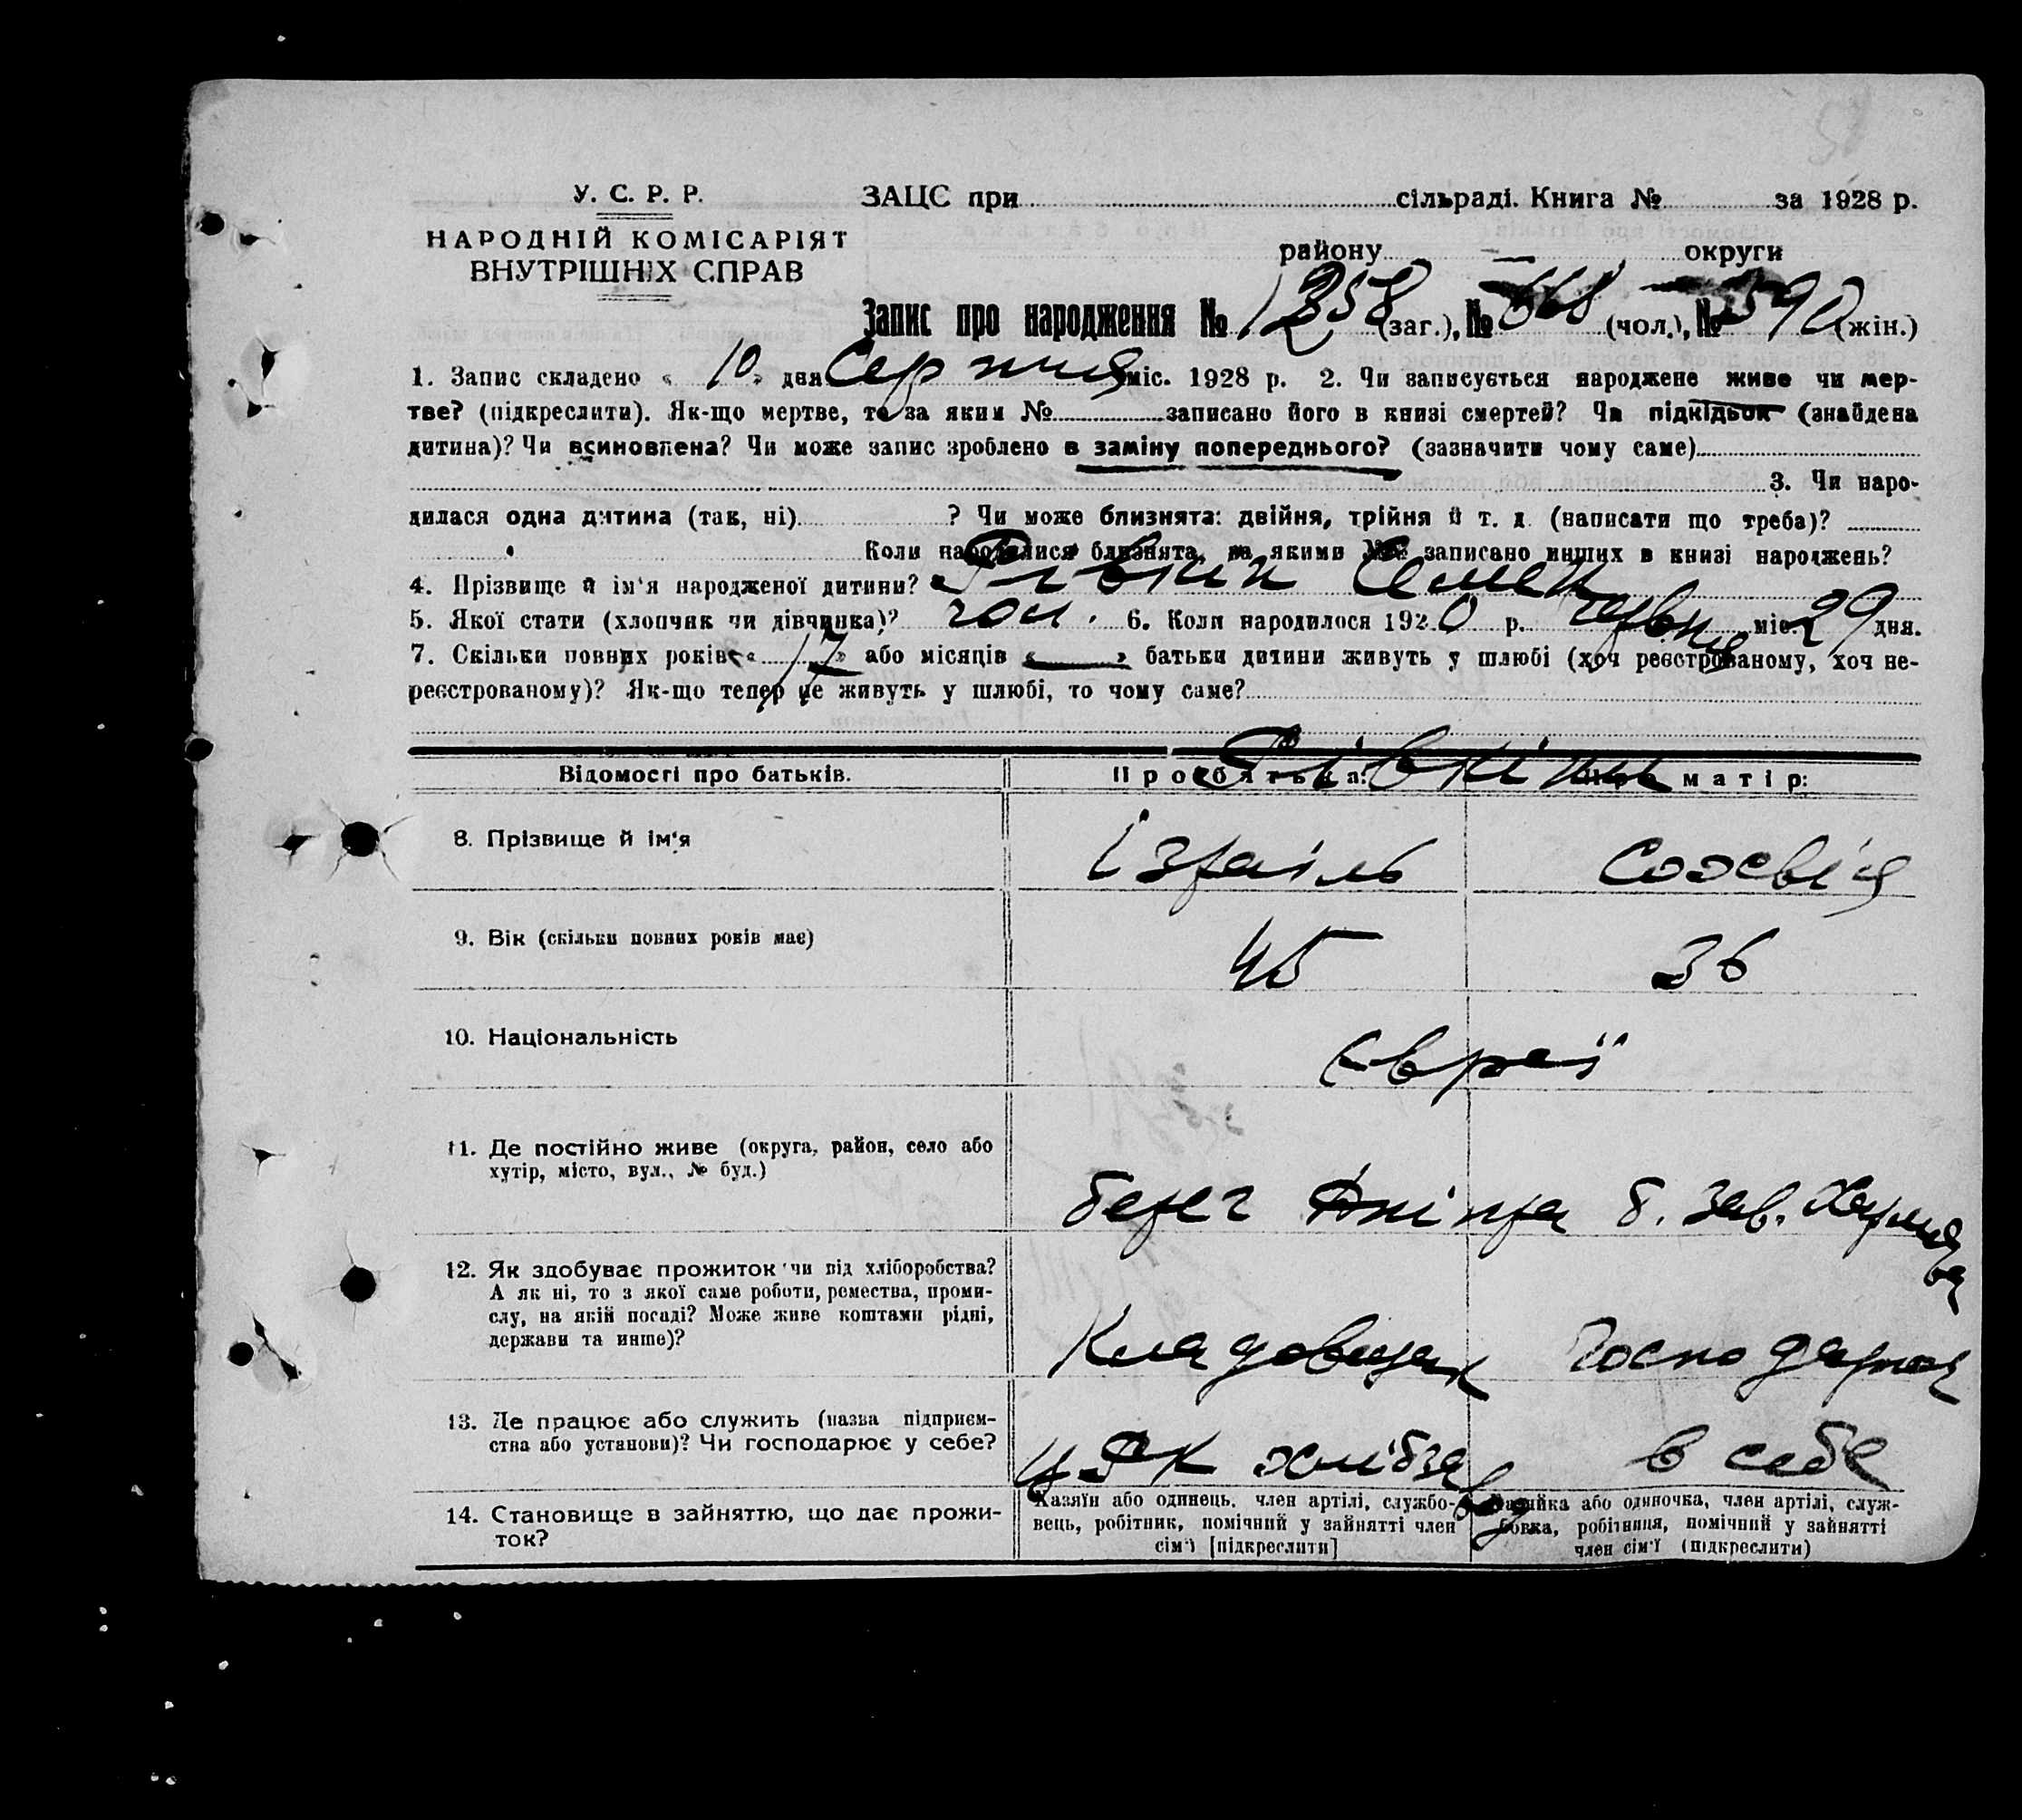 У. С. Р. Р.
НАРОДНІЙ КОМІСАРІЯТ
ВНУТРІШНІХ СПРАВ
ЗАЦС при сільраді. Книга № за 1928 р.
району — округи
Запис про народження № 1258 (заг.), № 668 (чол.), № 590 (жін.)
1. Запис складено « 10 » дня Серпня міс. 1928 р. 2. Чи записується народжене живе чи мер-
тве? (підкреслити). Як-що мертве, то за яким № записано його в книзі смертей? Чи підкідьок (знайдена
дитина)? Чи всиновлена? Чи може запис зроблено в заміну попереднього? (зазначити чому саме)
3. Чи наро-
дилася одна дитина (так, ні) ? Чи може близнята: двійня, трійня й т. д. (написати що треба)?
Коли народилися близнята, за якими №№ записано инших в книзі народжень?
4. Прізвище й ім'я народженої дитини? Рівкін
5. Якої стати (хлопчик чи дівчинка)? чол. 6. Коли народилося 1920 р. червня міс. 29 дня.
7. Скільки повних років « 17 » або місяців « — » батьки дитини живуть у шлюбі (хоч реєстрованому, хоч не-
реєстрованому)? Як-що тепер не живуть у шлюбі, то чому саме?
Рівкіни
Відомості про батьків. Про батька: Про матір:
8. Прізвище й ім'я Ізраіль
9. Вік (скільки повних років має) 45 36
10. Національність Євреї
11. Де постійно живе (округа, район, село або
хутір, місто, вул., № буд.) берег Дніпра б. зав.
12. Як здобуває прожиток чи від хліборобства?
А як ні, то з якої саме роботи, ремества, проми-
слу, на якій посаді? Може живе коштами рідні,
держави та инше)? Кладовщик Господарка
13. Де працює або служить (назва підприєм-
ства або установи)? Чи господарює у себе? ЦРК хлібзавод в себе
14. Становище в зайняттю, що дає прожи-
ток?
Хазяїн або одинець, член артілі, службо-
вець, робітник, помічний у зайнятті член
сім'ї [підкреслити]
Хазяйка або одиночка, член артілі, служ-
бовка, робітниця, помічний у зайнятті
член сім'ї (підкреслити)